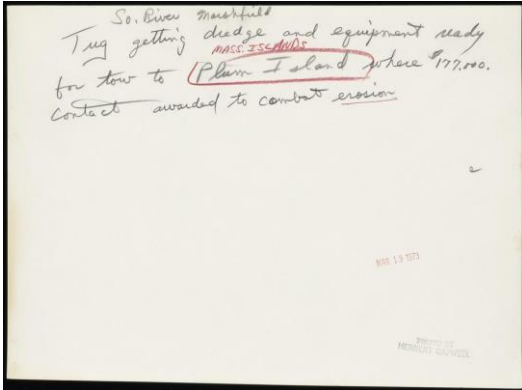 So. River Marshfield
Tug getting dredge and equipment ready
MASS. ISLANDS
for tow to Plum Island where $177,000.
Contact awarded to combat erosion
MAR 19 1973
PHOTO BY